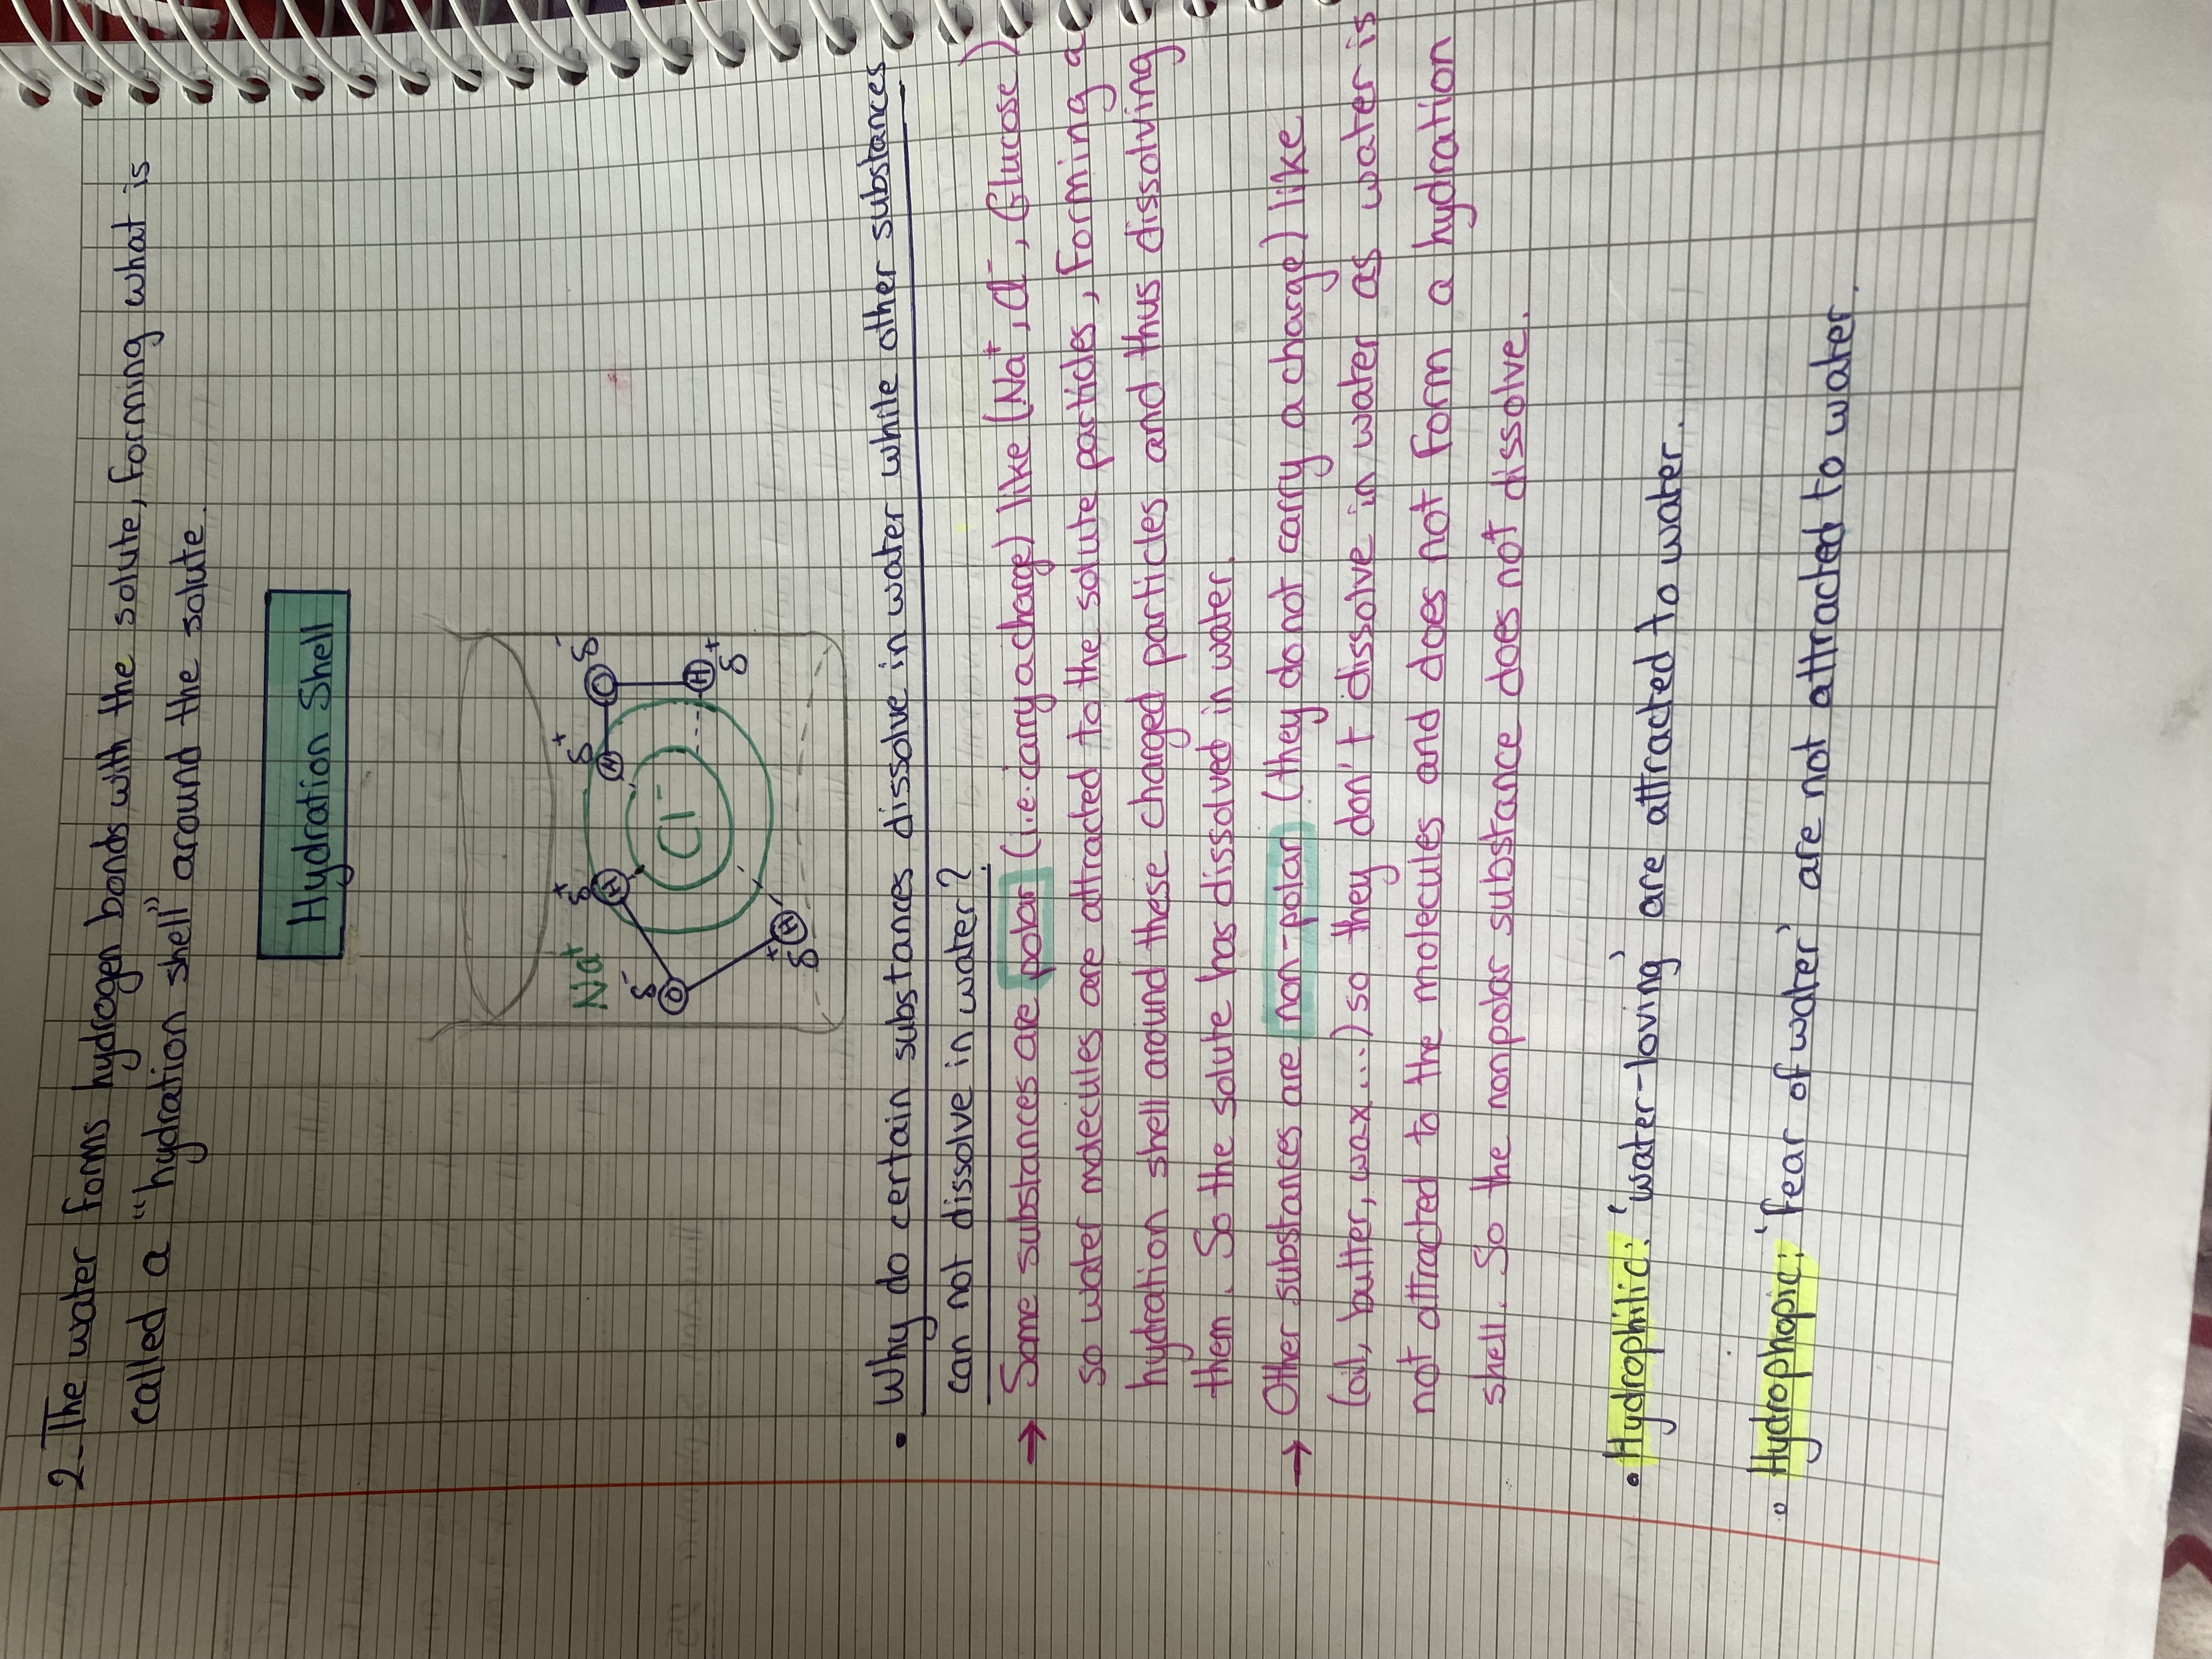 2-The water forms hydrogen bonds with the solute, forming what is
called a "hydration shell" around the solute.
Hydration Shell
Na⁺
δ⁺ H
δ⁻ O
δ⁺ H
Cl⁻
δ⁺ H
O δ⁻
H δ⁺
• Why do certain substances dissolve in water while other substances
can not dissolve in water?
→ Some substances are polar (i.e. carry a charge) like (Na⁺, Cl⁻, Glucose)
so water molecules are attracted to the solute particles, forming a
hydration shell around these charged particles and thus dissolving
them. So the solute has dissolved in water.
→ Other substances are non-polar (they do not carry a charge) like
(oil, butter, wax...) so they don't dissolve in water as water is
not attracted to the molecules and does not form a hydration
shell. So the nonpolar substance does not dissolve.
• Hydrophilic: 'water-loving' are attracted to water.
• Hydrophopic: 'fear of water' are not attracted to water.